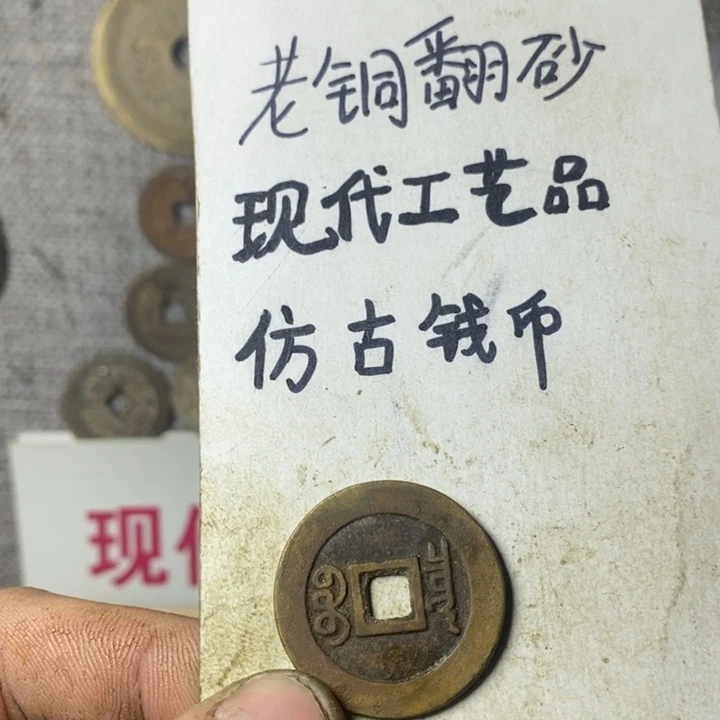 老铜翻砂
现代工艺品
仿古钱币
现